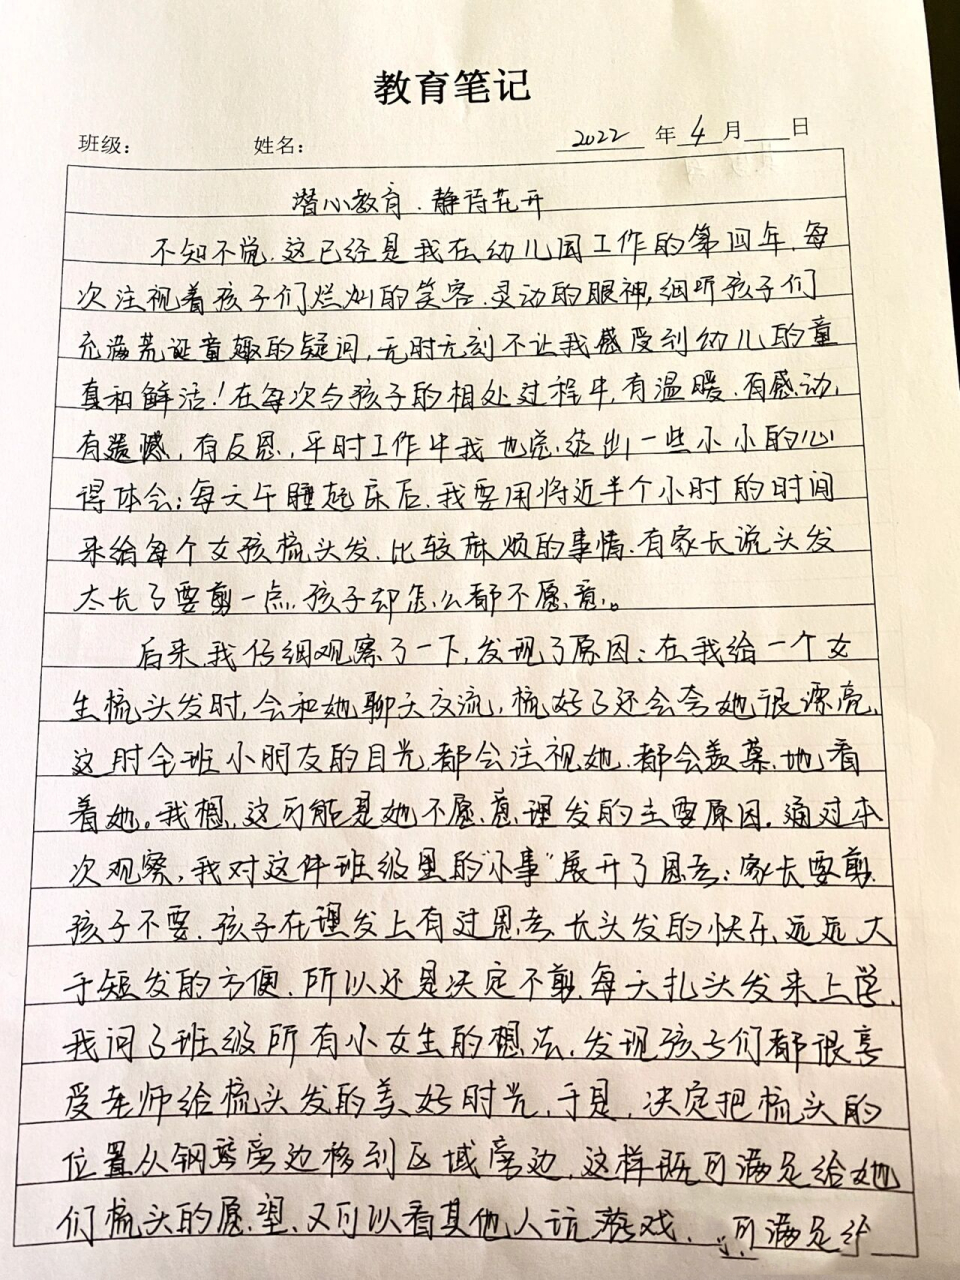 教育笔记
班级： 姓名： 2022 年 4 月 日
潜心教育.静待花开
不知不觉,这已经是我在幼儿园工作的第四年,每
次注视着孩子们烂灿的笑容.灵动的眼神,细听孩子们
充满荒诞童趣的疑问,无时无刻不让我感受到幼儿的童
真和鲜活！在每次与孩子的相处过程中,有温暖.有感动,
有遗憾,有反思,平时工作中我也总结出一些小小的心
得体会；每天午睡起床后,我要用将近半个小时的时间
来给每个女孩梳头发.比较麻烦的事情.有家长说头发
太长了要剪一点,孩子却怎么都不愿意。
后来,我仔细观察了一下,发现了原因：在我给一个女
生梳头发时,会和她聊天交流,梳好了还会夸她很漂亮,
这时全班小朋友的目光,都会注视她.都会羡慕地看
着她。我想,这可能是她不愿意理发的主要原因.通过本
次观察,我对这件班级里的"小事"展开了思考：家长要剪.
孩子不要.孩子在理发上有过思考.长头发的快乐远远大
于短发的方便.所以还是决定不剪,每天扎头发来上学.
我问了班级所有小女生的想法.发现孩子们都很喜
爱老师给梳头发的美好时光.于是,决定把梳头的
位置从钢琴旁边移到区域旁边.这样既可满足给她
们梳头的愿望、又可以看其他人玩游戏. 可满足给